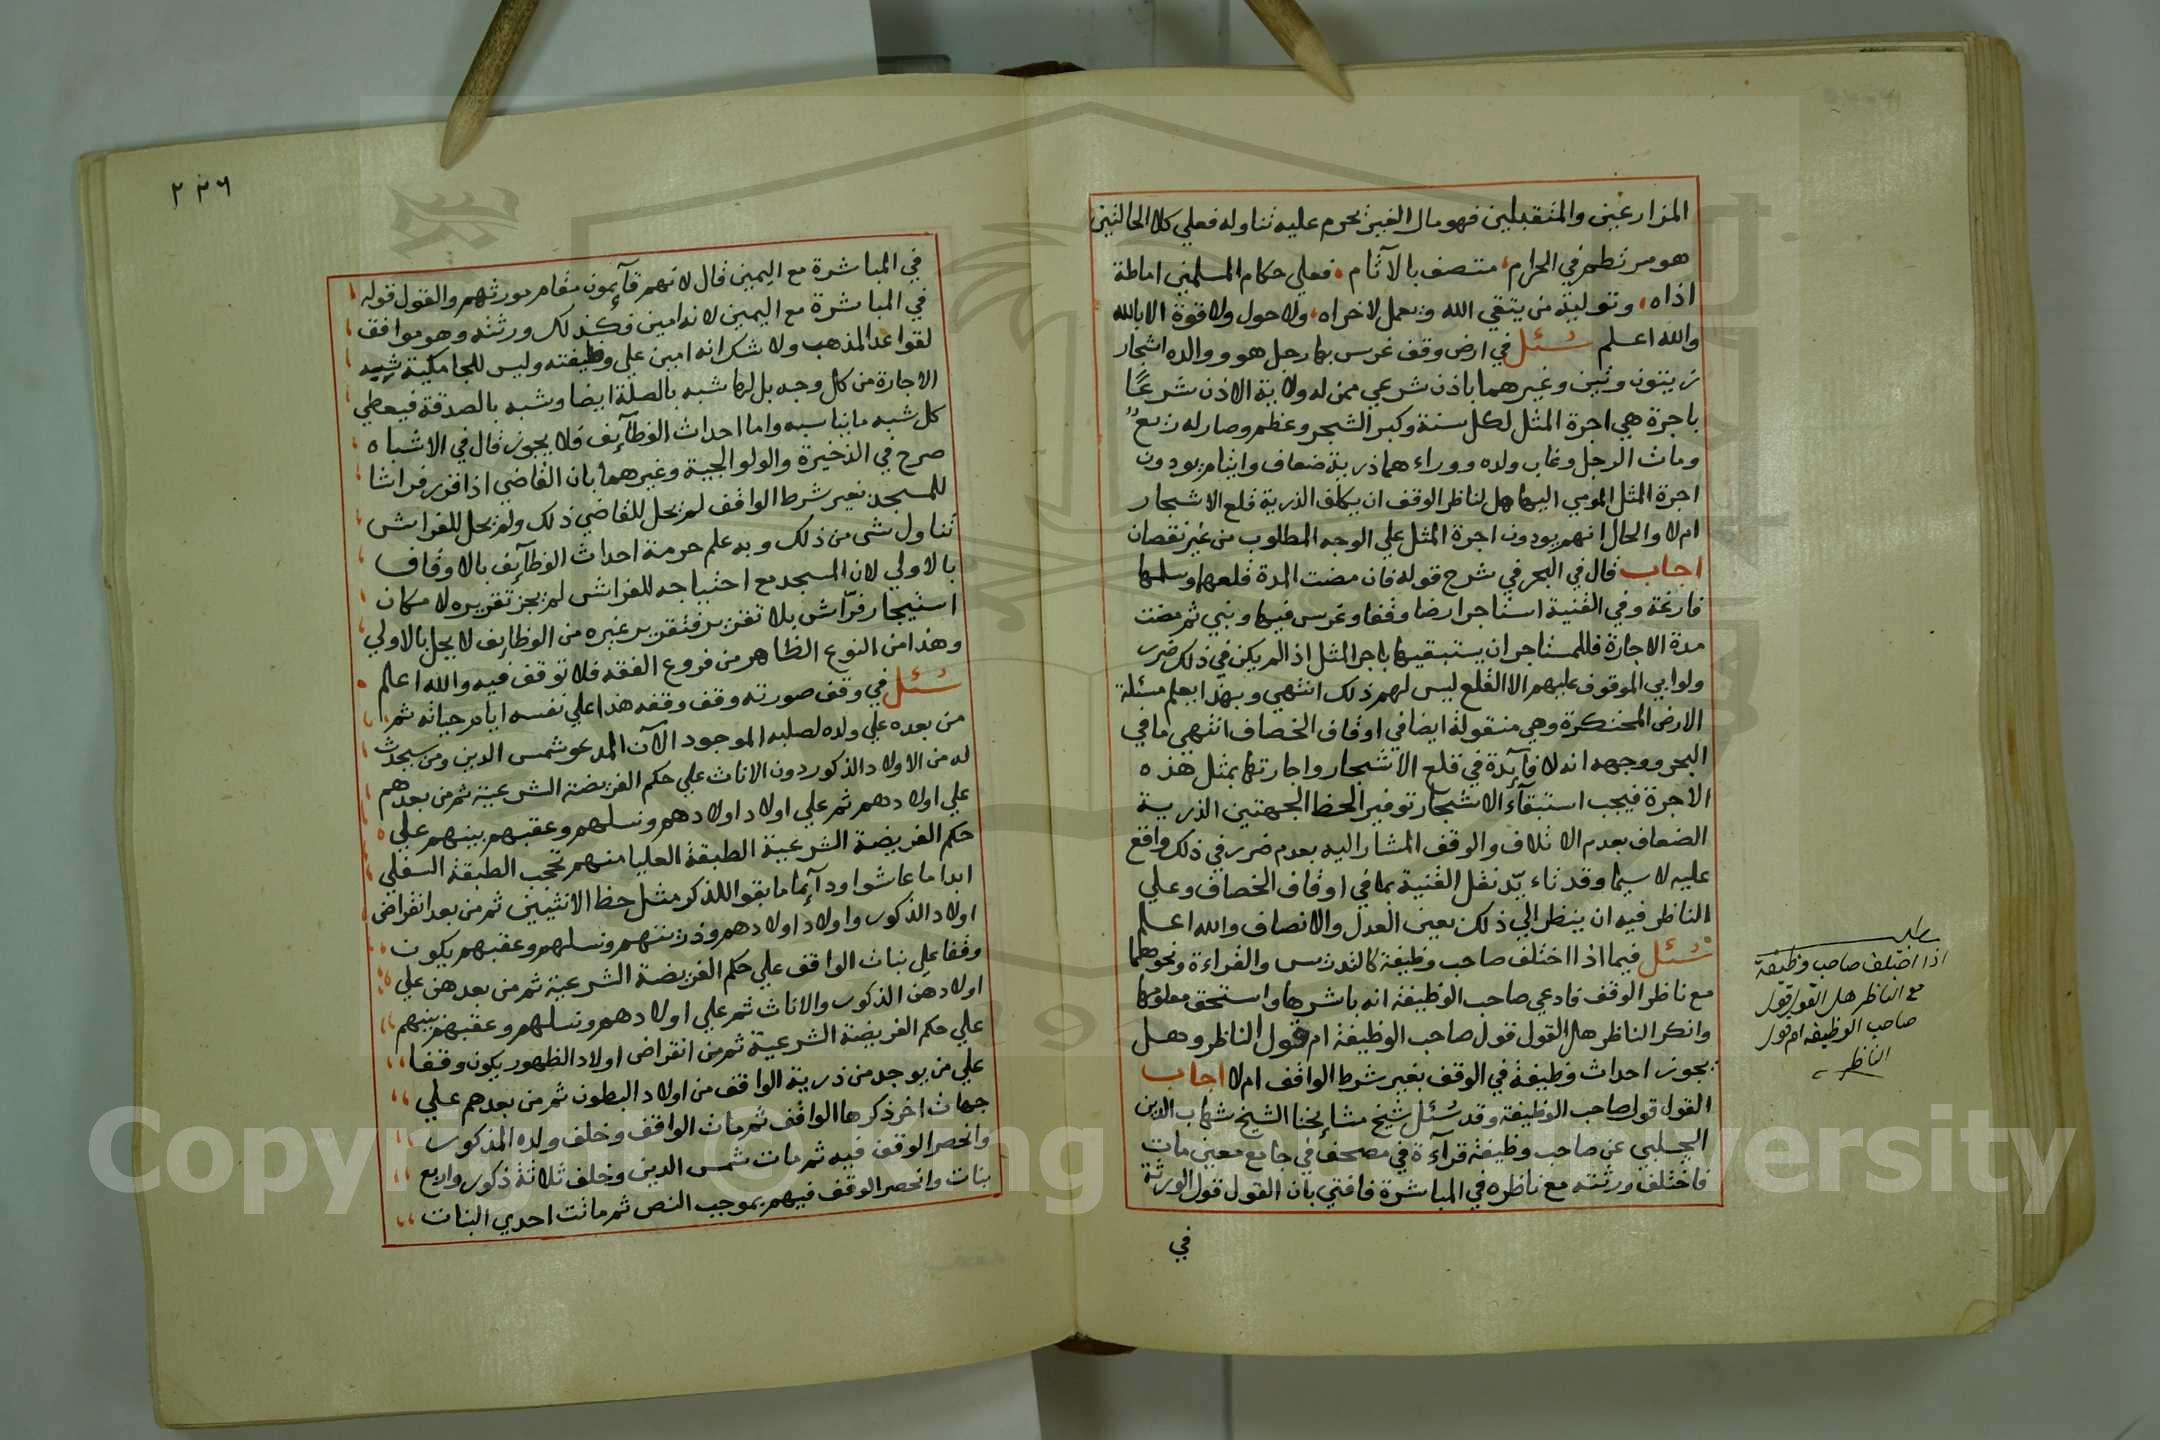 المزارعين والمتقبلين فهو مال الغير يحرم عليه تناوله فعلي كلا الحالتين
هو مرتطم في الحرام، متصف بالآثام، فعلي حكام المسلمين اماطة
اذاه، وتولية من يتقي الله ويعمل لاخراه، ولا حول ولا قوة الا بالله
والله اعلم سئل في ارض وقف غرس بها رجل هو ووالده اشجار
زيتون وتين وغيرهما باذن شرعي ممن له ولاية الاذن شرعًا
باجرة هي اجرة المثل لكل سنة وكبر الشجر وعظم وصار له ريع
ومات الرجل وغاب ولده ووراءهما ذرية ضعاف وايتام يودون
اجرة المثل المومي اليها هل لناظر الوقف ان يكلف الذرية قلع الاشجار
ام لا والحال انهم يودون اجرة المثل علي الوجه المطلوب من غير نقصان
اجاب قال في البحر في شرح قوله فان مضت المدة قلعها وسلمها
فارغة وفي القنية استاجر ارضا وقفا وغرس فيها وبني ثم مضت
مدة الاجارة فللمستاجر ان يستبقيها باجر المثل اذا لم يكن في ذلك ضرر
ولو ابي الموقوف عليهم الا القلع ليس لهم ذلك انتهي وبهذا يعلم مسئلة
الارض المحتكرة وهي منقولة ايضا في اوقاف الخصاف انتهي ما في
البحر ووجهه انه لا فآئدة في قلع الاشجار واجارتها بمثل هذه
الاجرة فيجب استبقآء الاشجار توفيرا لحظ الجهتين الذرية
الضعاف بعدم الاتلاف والوقف المشار اليه بعدم ضرر في ذلك واقع
عليه لا سيما وقد تاءيّد نقل القنية بما في اوقاف الخصاف وعلي
الناظر فيه ان ينظر الي ذلك بعين العدل والانصاف والله اعلم
سئل فيما اذا اختلف صاحب وظيفة كالتدريس والقراءة ونحوهما
مع ناظر الوقف فادعي صاحب الوظيفة انه باشرها واستحق معلومها
وانكر الناظر هل القول قول صاحب الوظيفة ام قول الناظر وهل
يجوز احداث وظيفة في الوقف بغير شرط الواقف ام لا اجاب
القول قول صاحب الوظيفة وقد سئل شيخ مشايخنا الشيخ شهاب الدين
الجلبي عن صاحب وظيفة قرآءة في مصحف في جامع معين مات
فاختلف ورثته مع ناظره في المباشرة فافتي بان القول قول الورثة
في
مطلب
اذا اختلف صاحب وظيفة
مع الناظر هل القول قول
صاحب الوظيفه ام قول
الناظر
٢٣٦
في المباشرة مع اليمين قال لانهم قآئمون مقام مورثهم والقول قوله
في المباشرة مع اليمين لانه امين فكذلك ورثته وهو موافق
لقواعد المذهب ولا شك انه امين علي وظيفته وليس للجامكية شبه
الاجارة من كل وجه بل لها شبه بالصلة ايضا وشبه بالصدقة فيعطي
كل شبه ما يناسبه واما احداث الوظآئف فلا يجوز قال في الاشباه
صرح في الذخيرة والولوالجية وغيرهما بان القاضي اذا قرر فراشا
للمسجد بغير شرط الواقف لم يحل للقاضي ذلك ولم يحل للفراش
تناول شي من ذلك وبه علم حرمة احداث الوظآئف بالاوقاف
بالاولي لان المسجد مع احتياجه للفراش لم يجز تقريره لامكان
استيجار فرّاش بلا تقرير فتقرير غيره من الوظايف لا يحل بالاولي
وهذا من النوع الظاهر من فروع الفقه فلا توقف فيه والله اعلم
سئل في وقف صورته وقف وقفه هذا علي نفسه ايام حياته ثم
من بعده علي ولده لصلبه الموجود الآن المدعو شمس الدين ومن سيحدث
له من الاولاد الذكور دون الاناث علي حكم الفريضة الشرعية ثم من بعدهم
علي اولادهم ثم علي اولاد اولادهم ونسلهم وعقبهم بينهم علي
حكم الفريضة الشرعية الطبقة العليا منهم تحجب الطبقة السفلي
ابدا ما عاشوا ودآئما ما بقوا للذكر مثل حظ الانثيين ثم من بعد انقراض
اولاد الذكور واولاد اولادهم وذريتهم ونسلهم وعقبهم يكون
وقفا علي بنات الواقف علي حكم الفريضة الشرعية ثم من بعدهن علي
اولادهن الذكور والاناث ثم علي اولادهم ونسلهم وعقبهم بينهم
علي حكم الفريضة الشرعية ثم من انقراض اولاد الظهور يكون وقفا
علي من يوجد من ذرية الواقف من اولاد البطون ثم من بعدهم علي
جهات اخر ذكرها الواقف ثم مات الواقف وخلف ولده المذكور
وانحصر الوقف فيه ثم مات شمس الدين وخلف ثلاثة ذكور واربع
بنات وانحصر الوقف فيهم بموجب النص ثم ماتت احدي البنات
Copyright © King University